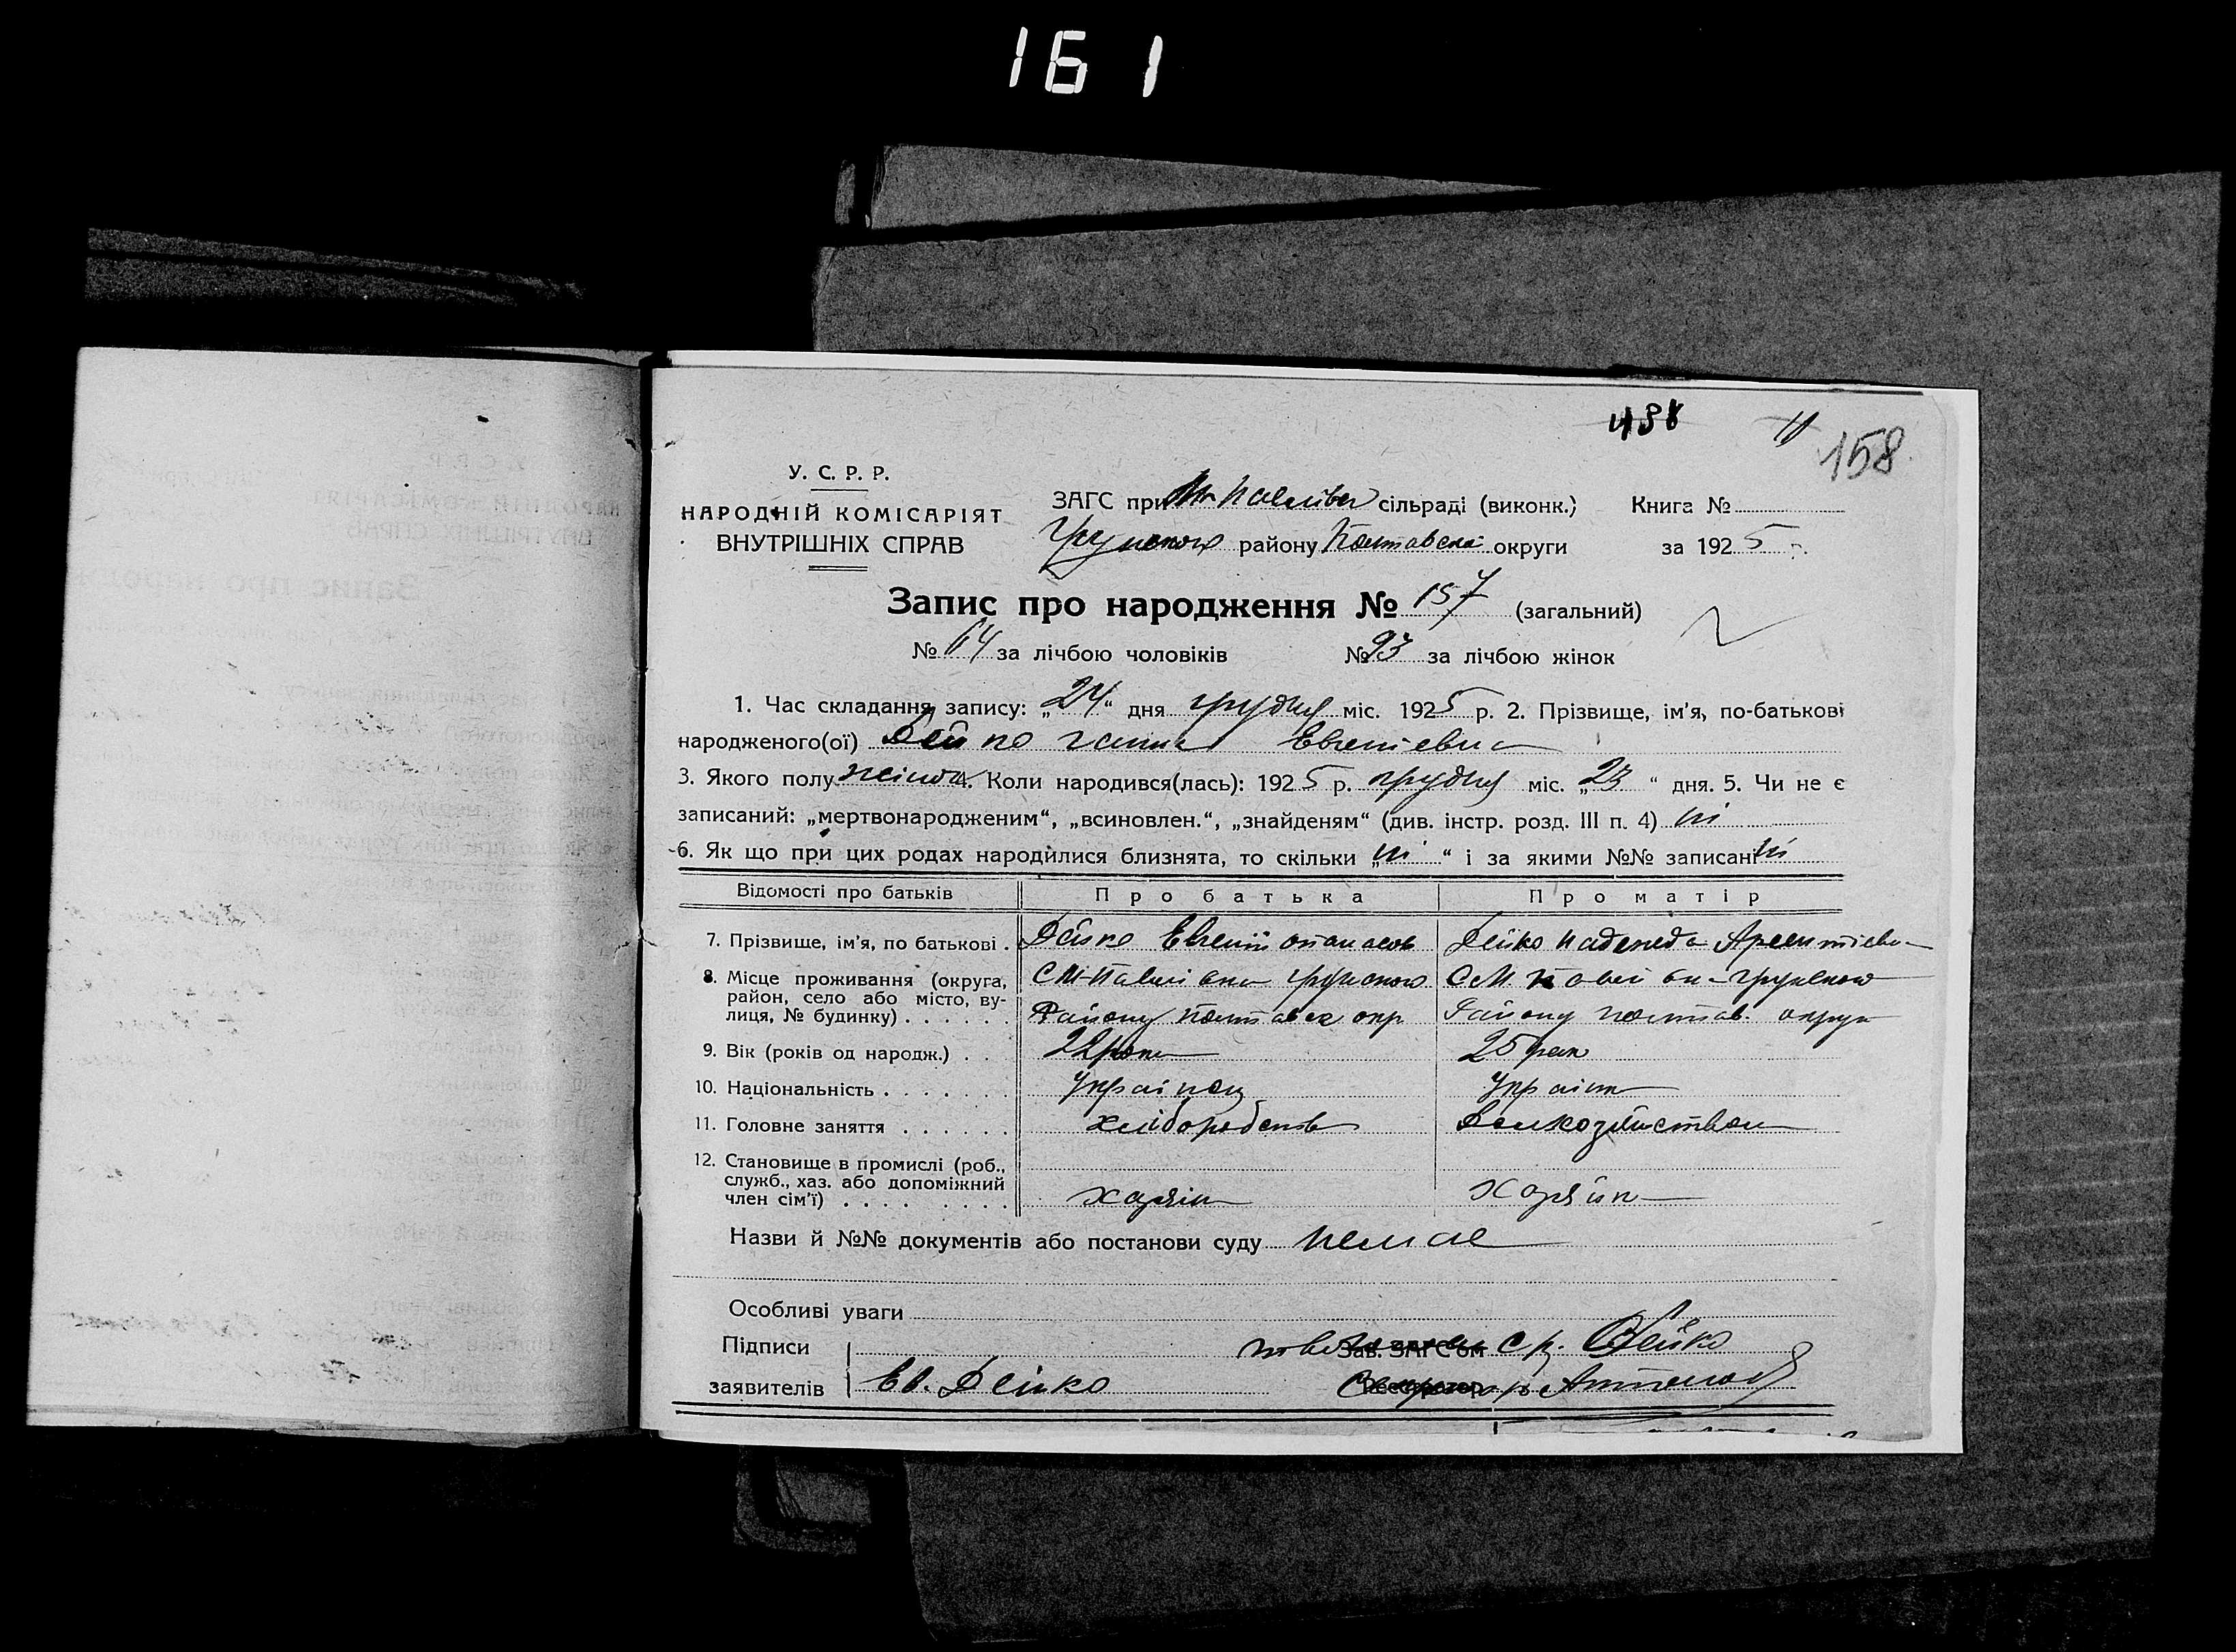 161
438
158
У. С. Р. Р.
НАРОДНІЙ КОМІСАРІЯТ
ВНУТРІШНІХ СПРАВ
ЗАГС при сільраді (виконк.) Книга №
району округи за 1925 р.
Запис про народження № 157 (загальний)
№ 64 за лічбою чоловіків № 93 за лічбою жінок
1. Час складання запису: „24“ дня грудня міс. 1925 р. 2. Прізвище, ім'я, по-батькові
народженого(ої) Дейко Евгеніевна
3. Якого полу жіноч. 4. Коли народився(лась): 1925 р. грудня міс. „23“ дня. 5. Чи не є
записаний: „мертвонародженим“, „всиновлен.“, „знайденям“ (див. інстр. розд. III п. 4) ні
6. Як що при цих родах народилися близнята, то скільки „ні“ і за якими №№ записані ні
Відомості про батьків Про батька Про матір
7. Прізвище, ім'я, по батькові . Дейко Евгеній Дейко Надежда
8. Місце проживання (округа,
район, село або місто, ву-
лиця, № будинку) . . . . . . Району Полтавск окр Району Полтав. округи
9. Вік (років од народж.) . . 22 роки 25 рок
10. Національність . . . . . . . Українец
11. Головне заняття . . . . . . хліборобств
12. Становище в промислі (роб.,
служб., хаз. або допоміжний
член сім'ї) . . . . . . . . . хазяін
Назви й №№ документів або постанови суду немае
Особливі уваги
Підписи Зав. ЗАГС'ом с/р. Дейко
заявителів Ев. Дейко Реєстратор